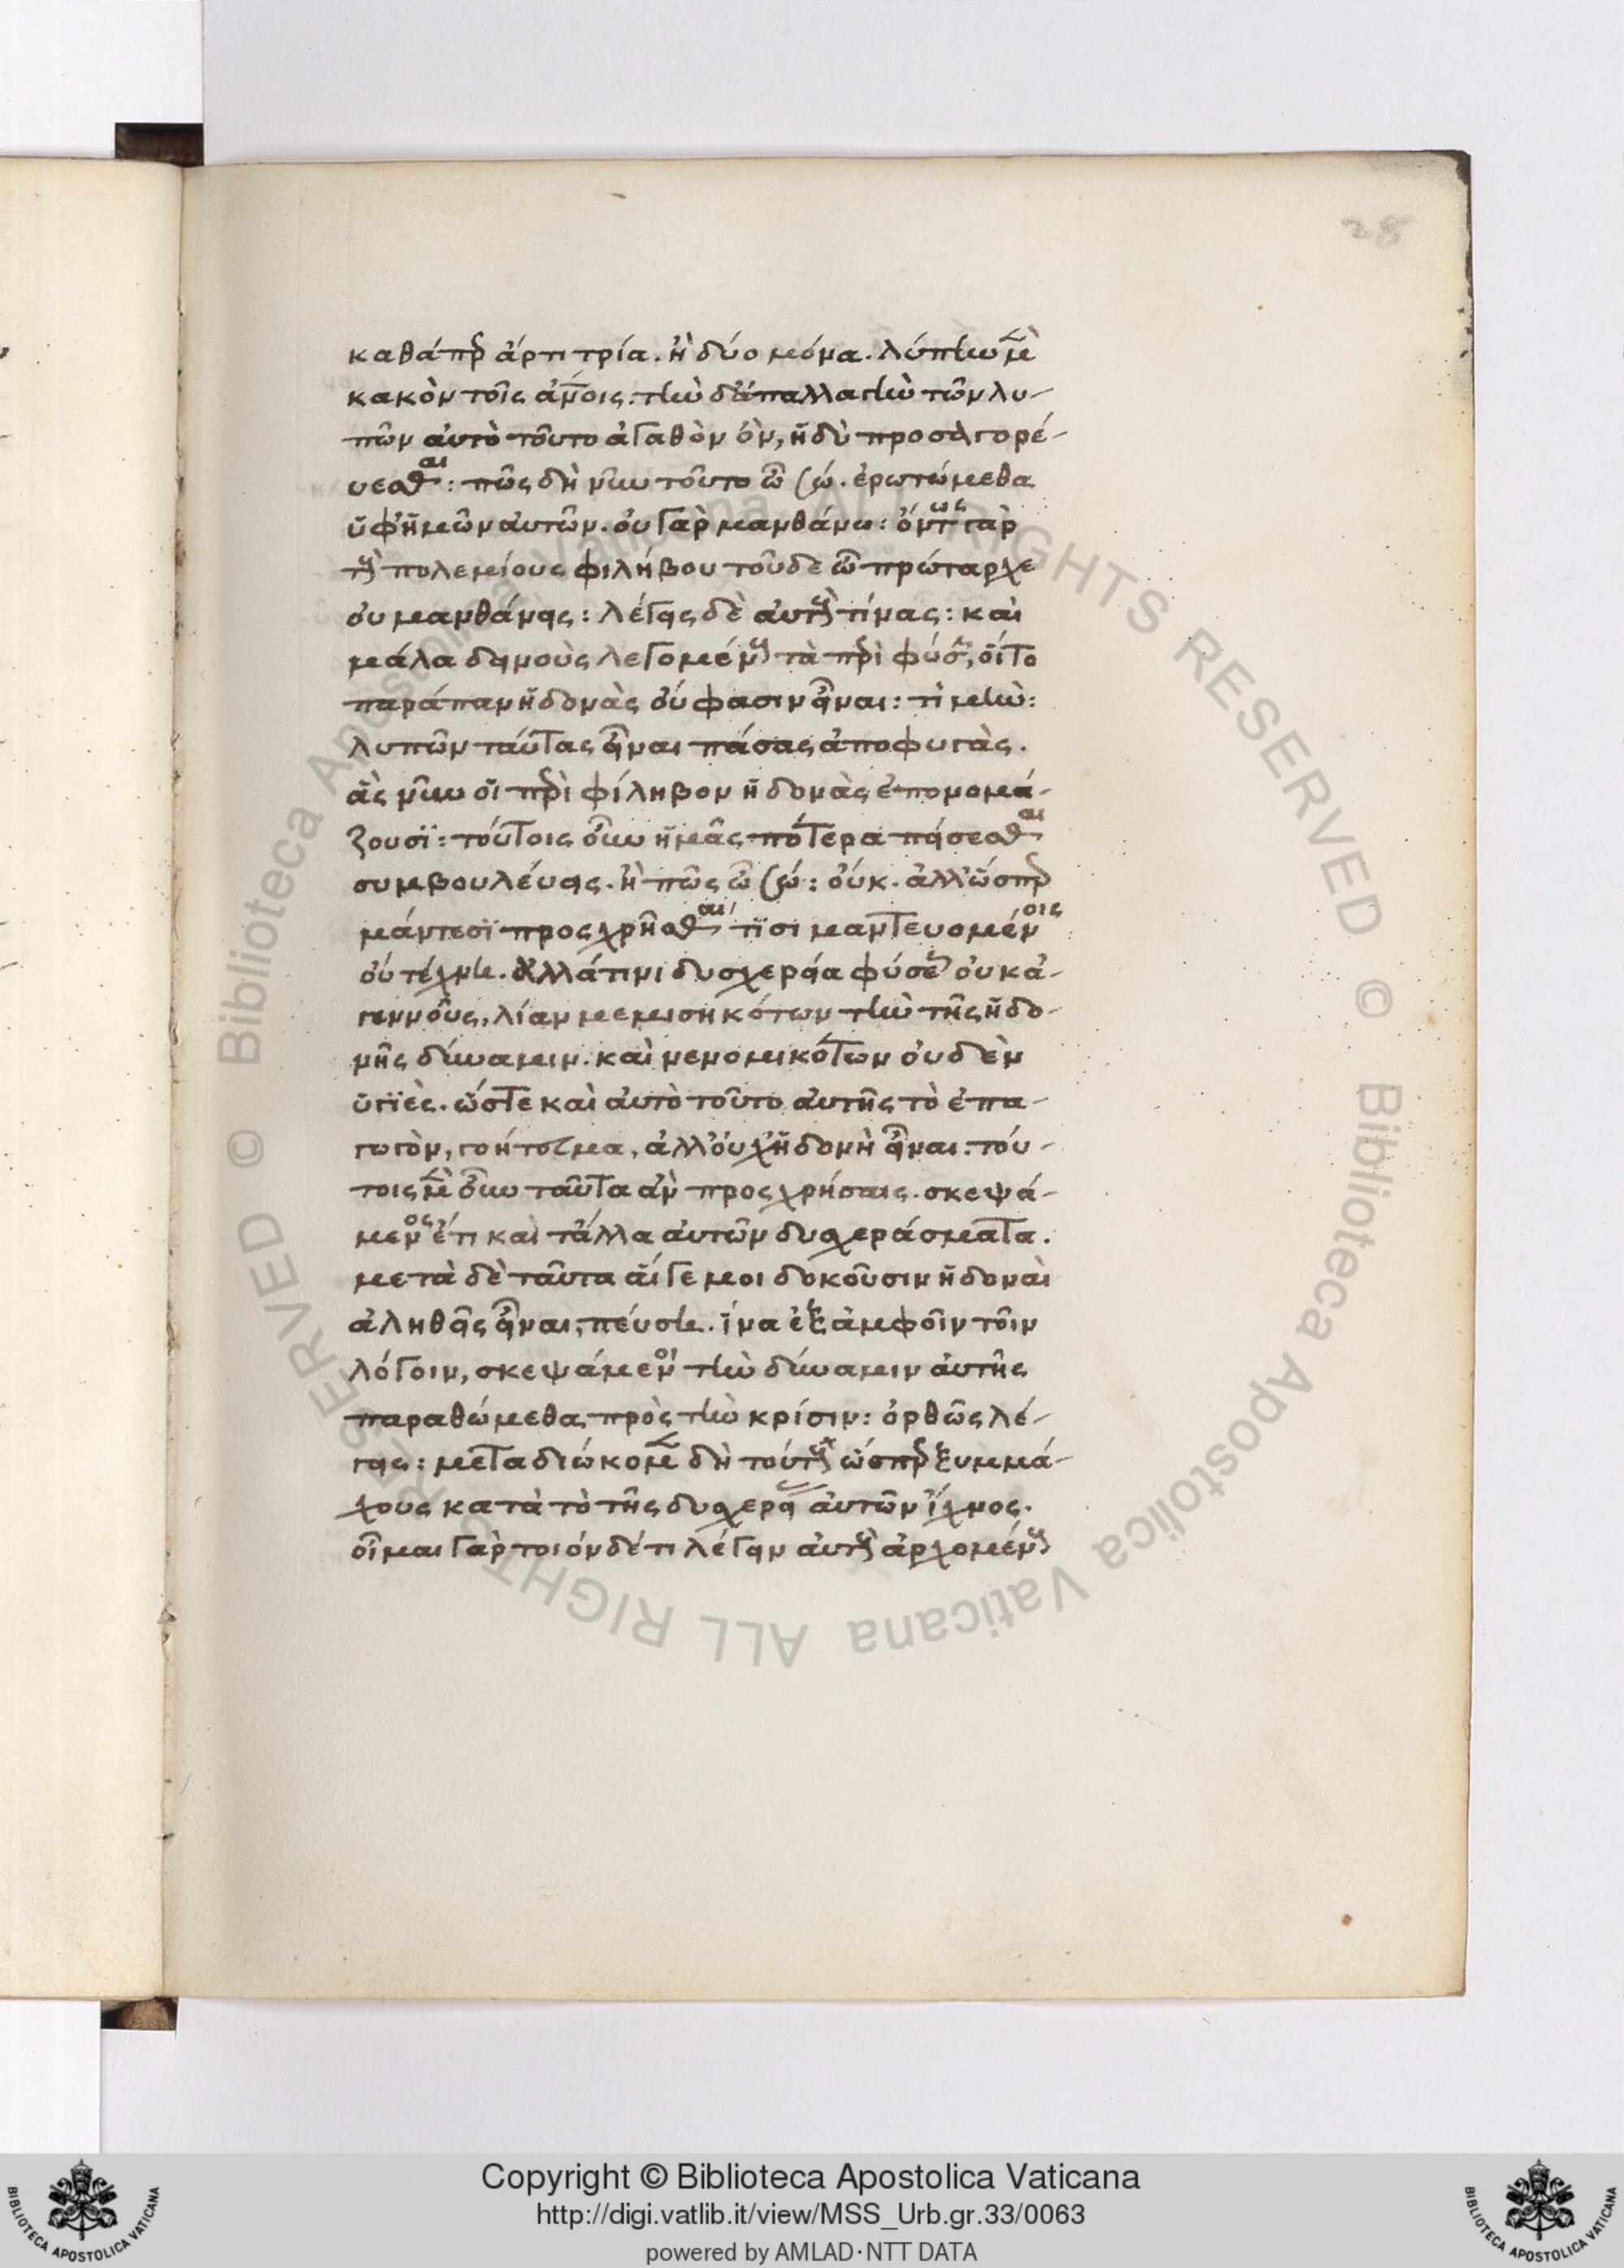 28
καθάπερ ἄρτι τρία. ἢ δύο μόνα. λύπην μὲν
κακὸν τοῖς ἀνοις: τὴν δ' ἀπαλλαγὴν τῶν λυ-
πῶν αὐτὸ τοῦτο ἀγαθὸν ὂν, ἡδὺ προσαγορέ-
υεσθαι: πῶς δὴ νῦν τοῦτο ὦ σώ. ἐρωτώμεθα
ὑφ' ἡμῶν αὐτῶν. οὐ γὰρ μανθάνω: ὄντως γὰρ
τοὺς πολεμίους φιλήβου τοῦδε ὦ πρώταρχε
οὐ μανθάνεις: λέγεις δὲ αὐτοὺς τίνας: καὶ
μάλα δεινοὺς λεγομένους τὰ περὶ φύσιν, οἳ το
παράπαν ἡδονὰς οὔ φασιν εἶναι: τί μὴν:
λυπῶν ταύτας εἶναι πάσας ἀποφυγάς.
ἃς νῦν οἱ περὶ φίληβον ἡδονὰς ἐπονομά-
ζουσϊ: τούτοις οὖν ἡμᾶς πότερα πείσεσθαι
συμβουλέυεις. ἢ πῶς ὦ σώ: οὔκ. ἀλλ' ὥσπερ
μάντεσϊ προσχρῆσθαι τϊσι μαντευομένοις
οὐ τέχνη. ἀλλά τινι δυσχερεία φύσεως οὐκ ἀ-
γεννοῦς, λίαν μεμισηκότων τὴν τῆς ἡδο-
νῆς δύναμιν. καὶ νενομικότων οὐδὲν
ὑγϊὲς. ὥστε καὶ αὐτὸ τοῦτο αὐτῆς τὸ ἐπα-
γωγὸν, γοήτευμα, ἀλλ' οὐχ ἡδονὴ εἶναι. τού-
τοις μὲν οὖν ταῦτα ἂν προσχρήσαις. σκεψά-
μενος ἔτι καὶ τἄλλα αὐτῶν δυσχεράσματα.
μετὰ δὲ ταῦτα αἵ γε μοι δοκοῦσιν ἡδοναὶ
ἀληθεῖς εἶναι, πέυση. ἵνα ἐξ ἀμφοῖν τοῖν
λόγοιν, σκεψάμενοι τὴν δύναμιν αὐτῆς
παραθώμεθα πρὸς τὴν κρίσιν: ὀρθῶς λέ-
γεις: μεταδιώκομεν δὴ τούτους ὥσπερ ξυμμά-
χους κατὰ τὸ τῆς δυσχερείας αὐτῶν ἴχνος.
οἶμαι γὰρ τοιόνδέ τι λέγειν αὐτοὺς ἀρχομένους
Copyright © Biblioteca Apostolica Vaticana
http://digi.vatlib.it/view/MSS_Urb.gr.33/0063
powered by AMLAD·NTT DATA
BIBLIOTECA APOSTOLICA VATICANA
BIBLIOTECA APOSTOLICA VATICANA
© Biblioteca Apostolica Vaticana ALL RIGHTS RESERVED
© Biblioteca Apostolica Vaticana ALL RIGHTS RESERVED